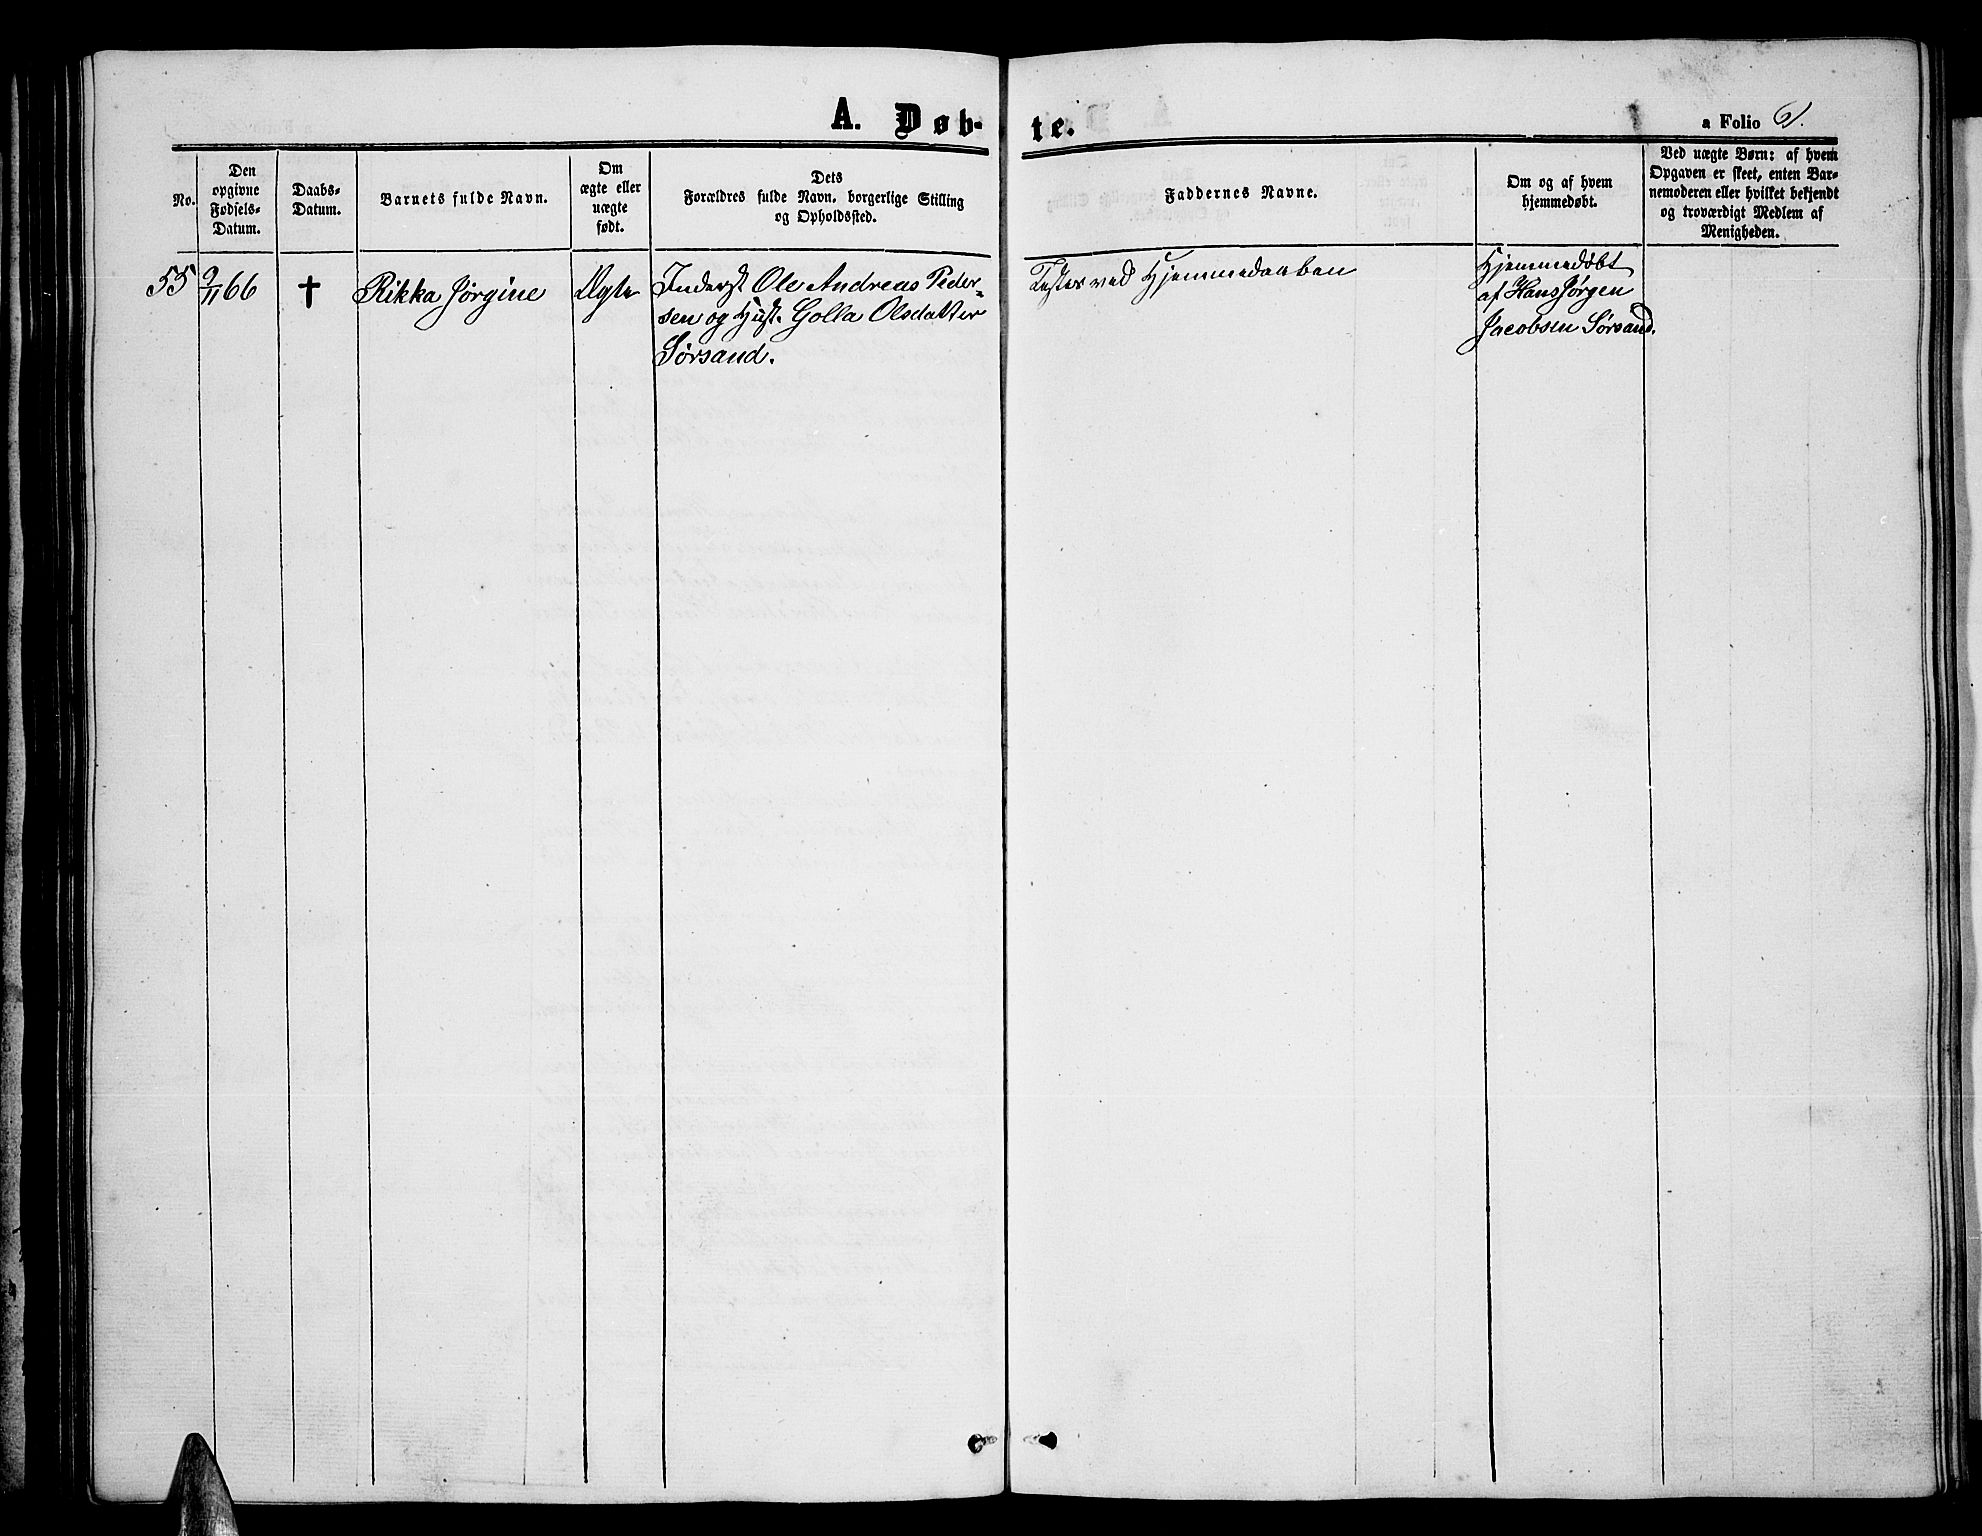 A. Døb-
te.
a Folio 61.
No.
Den
opgivne
Fødsels-
Datum.
Daabs-
Datum.
Barnets fulde Navn.
Om
ægte eller
uægte
født.
Dets
Forældres fulde Navn, borgerlige Stilling
og Opholdssted.
Faddernes Navne.
Om og af hvem
hjemmedøbt.
Ved uægte Børn: af hvem
Opgaven er skeet, enten Bar-
nemoderen eller hvilket bekjendt
og troværdigt Medlem af
Menigheden.
55
9/11 66
†
Rikka Jørgine
Ægte
Inderst Ole Andreas Peder-
sen og Hust. Golla Olsdatter
Sørsand.
ved Hjemmedaaben
Hjemmedøbt
af Hans Jørgen
Jacobsen Sørsand.